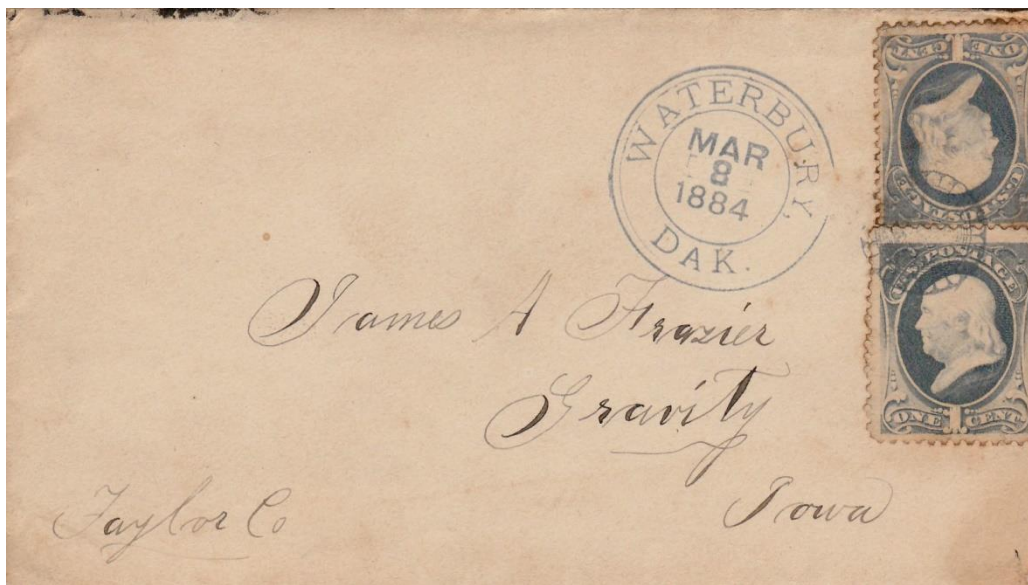 WATERBURY,
MAR
8
1884
DAK.
ONE 1 CENT
U.S. POSTAGE
U.S. POSTAGE
ONE 1 CENT
James A Frazier
Gravity
Iowa
Taylor Co